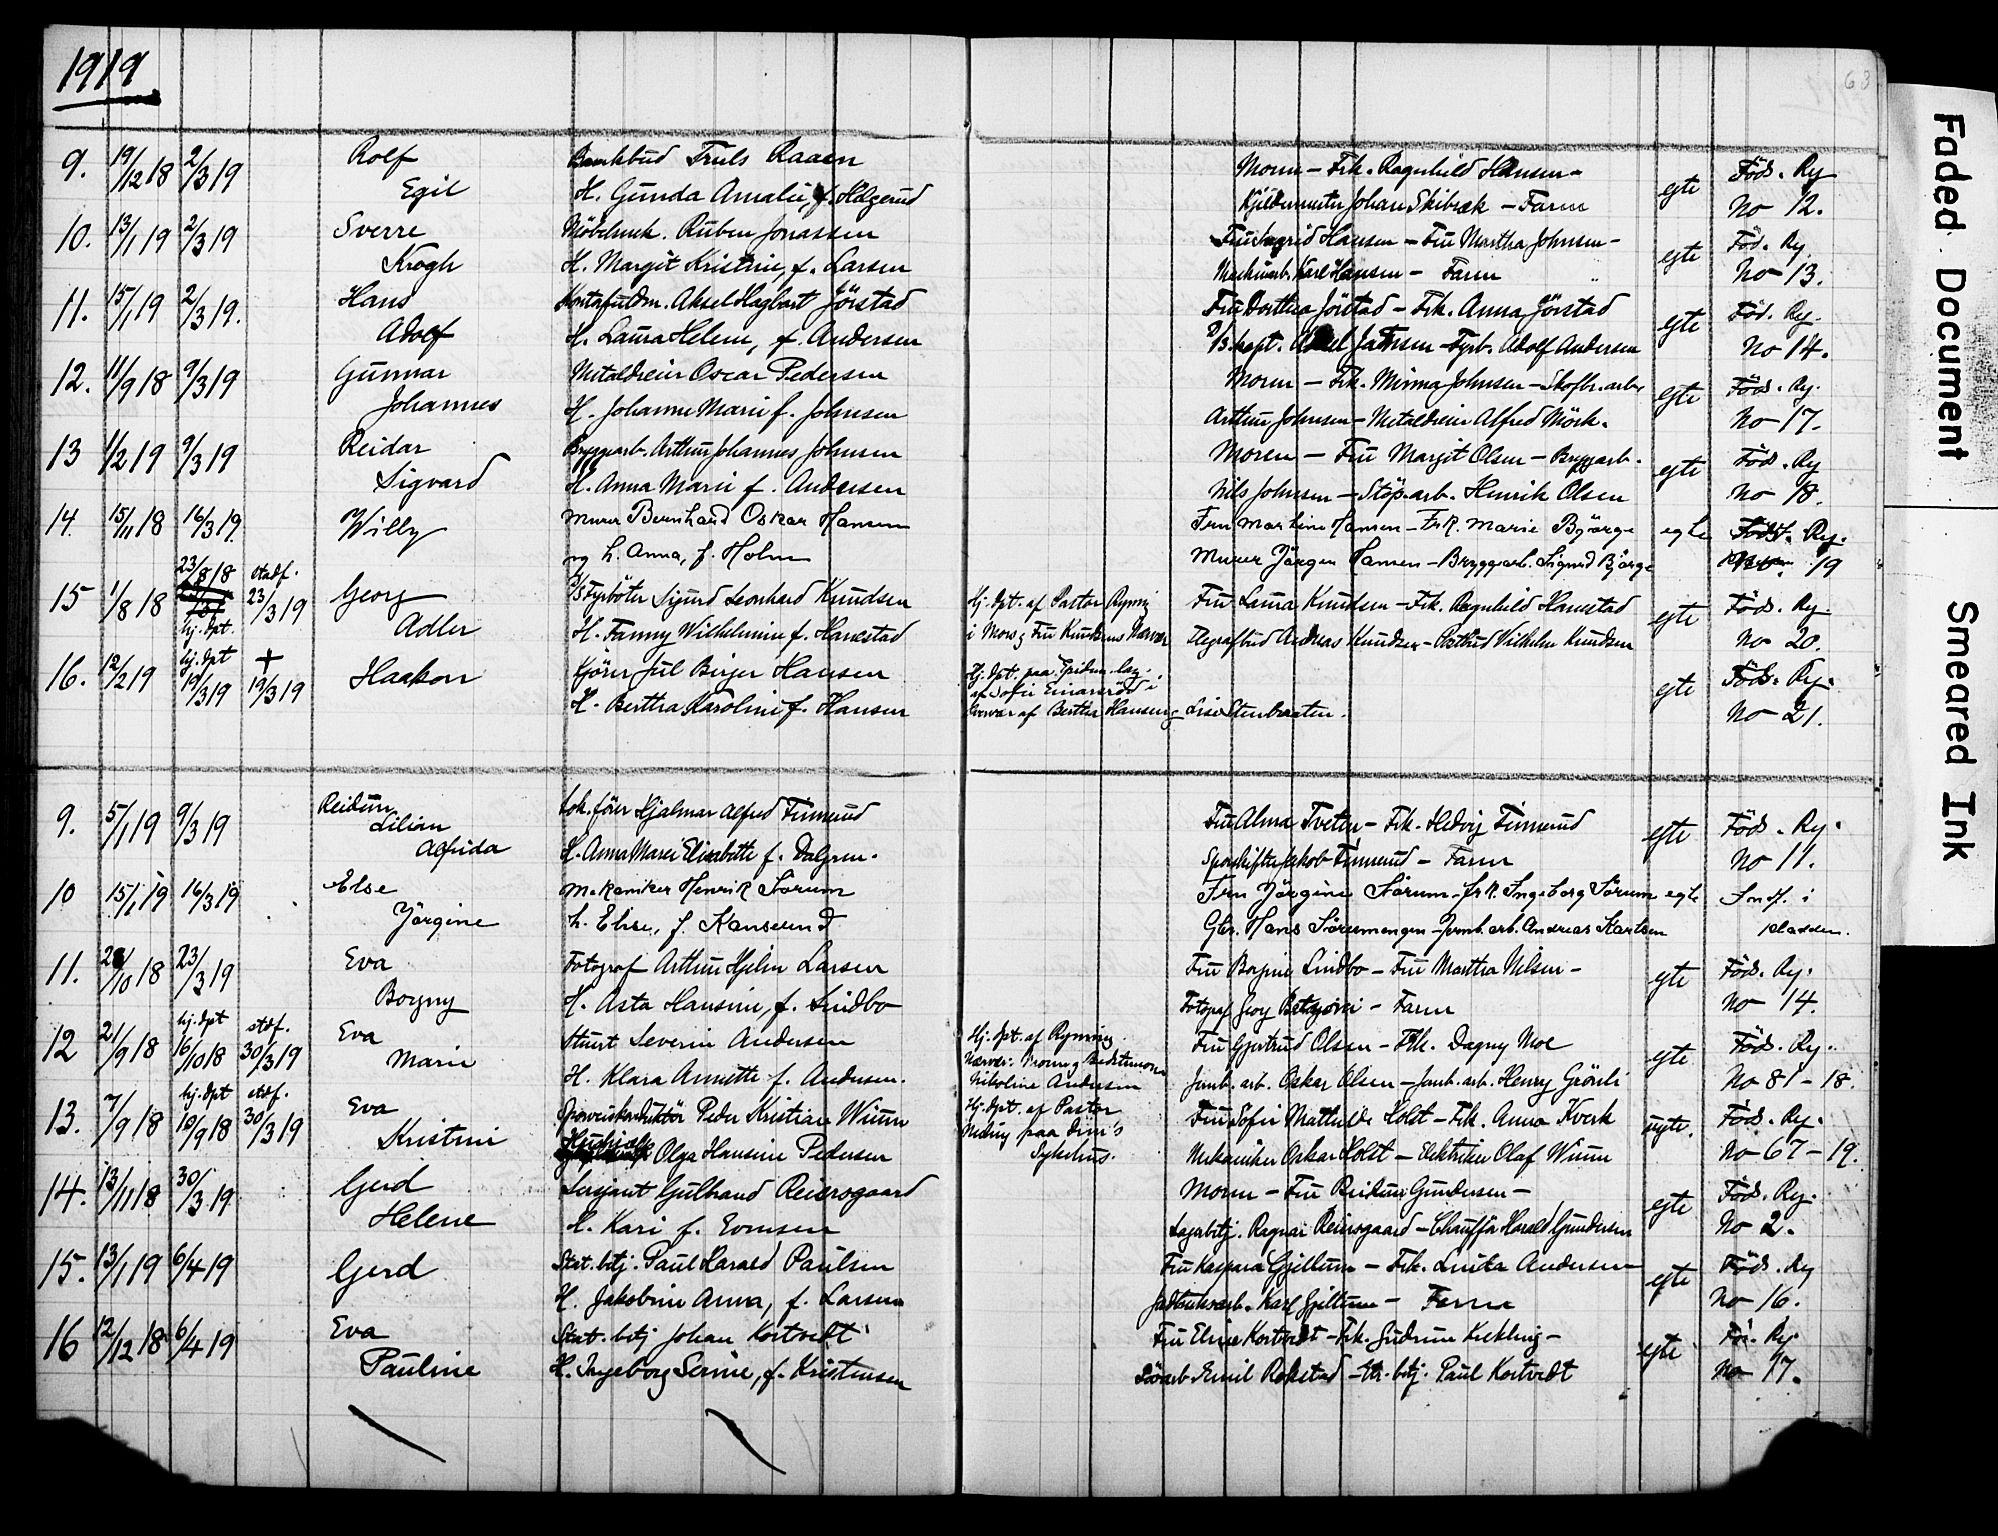 1919
63
9. 19/12 18 2/3 19 Rolf Bankbud Truls Raaen Moren - Frk. Ragnhild Hansen - egte Föds. Rg
Egil H. Gunda Amalie, f. Holgerud Johan Skibræk - Faren No 12.
10. 13/1 19 2/3 19 Sverre Möbelsnek. Ruben Jonassen Fru Ingrid Hansen - Fru Martha Johnsen - egte Föd. Rg.
Krogh H. Margit Kristine, f. Larsen Maskinarb. Karl Hansen - Faren No 13.
11. 15/1 19 2/3 19. Hans Kontorfuldm. Aksel Hagbart Jörstad Fru Dorthea Jörstad - Frk. Anna Jörstad egte Föd. Rg.
Adolf H. Laura Helene, f. Andersen Jansen - Fyrb. Adolf Andersen No 14.
12. 11/9 18 9/3 19 Gunnar Metaldreier Oscar Pedersen Moren - Frk. Minna Johnsen - Skofbr. arb. egte Föds. Rg.
Johannes H. Johanne Marie f. Johnsen Arthur Johnsen - Metaldreier Alfred Mörk. No 17.
13 1/2 19 9/3 19 Reidar Bryggearb. Arthur Johannes Johnsen Moren - Fru Margit Olsen - Bryggarb. egte Föds. Rg
Sigvard H. Anna Marie f. Andersen Nils Johnsen - Stöp. arb. Henrik Olsen No 18.
14 15/11 18 16/3 19. Willy Murer Bernhard Oskar Hansen Fru Martine Hansen - Frk. Marie Bjørge egte Föds. Rg.
og h. Anna, f. Holm Murer Jörgen Hansen - Bryggearb. Sigurd Bjørge 19
15 1/8 18 23/8 18 hj. dpt. stadf. 23/3 19 Georg Fyrböter Sigurd Leonhard Knudsen Hj. dpt. af Pastor Ryning Fru Laura Knudsen - Frk. Ragnhild Hanestad egte Föds. Rg
Adler H. Fanny Wilhelmine f. Hanestad i Mors og Fru Knudsens Nærvær Telegrafbud Andreas Knudsen - Postbud Vilhelm Knudsen No 20.
16. 12/2 19 hj. dpt 19/3 19 † 19/3 19 Haakon Kjörer Jul Birger Hansen Hj. dpt. paa Epidem. laz. egte Föds. Rg.
af Sofie Einarsröd i
H. Bertha Karoline f. Hansen Nærvær af Bertha Hansen og Lise Stenbraaten. No 21.
9. 5/1 19 9/3 19 Reidun Lok. förer Hjalmar Alfred Finnerud Fru Alma Tveten - Frk. Hedvig Finnerud egte Föds. Rg.
Lilian
Alfrida H. Anna Marie Elisabeth f. Dalgren. Sporskifter Jakob Finnerud - Faren No 11.
10 15/1 19 16/3 19 Else Mekaniker Henrik Sörum Fru Jörgine Sörum - Frk. Ingeborg Sörum egte Indf. i
Jörgine h. Elise, f. Kanserud Gbr. Hans Sörumengen - Jernb. arb. Andreas Karlsen kladden.
11. 28/10 18 23/3 19 Eva Fotograf Arthur Hjelm Larsen Fru Borgine Lindbo - Fru Martha Nilsen - egte Föds. Rg.
Borgny H. Asta Hansine, f. Lindbo Fotograf Georg - Faren No 14.
12 21/9 18 hj. dpt 16/10 18 stdf. 30/3 19 Eva Stuert Severin Andersen Hj. dpt. af Ryning. Fru Gjertrud Olsen - Frk. Dagny Moe egte Föds. Rg.
Marie Nærvær: Moren og Bedstemoren
H. Klara Annette f. Andersen. Nikoline Andersen Jernb. arb. Oskar Olsen - Jernb. arb. Henry Grönli No 81 - 18.
13. 7/9 18 hj. dpt 10/9 18 stdf. 30/3 19 Eva Sporveiskonduktör Peder Kristian Wium Hj. dpt. af Pastor Fru Sofie Mathilde Holst - Frk. Anna Kverk uegte. Föds. Rg.
Kristine Olga Hansine Pedersen paa Dim's
Sykehus. Mekaniker Oskar Holst - Elektriker Olaf Wium No 67 - 19.
14. 13/11 18 30/3 19 Gerd Sersjant Gulbrand Reiersgaard Moren - Fru Reidun Gundersen - egte Föds. Rg.
Helene H. Kari f. Evensen Lagerbetj. Ragnar Reiersgaard - Chauffør Harald Gundersen No 2.
15. 13/1 19 6/4 19 Gerd Stat. betj. Paul Harald Paulsen Fru Kaspara Gjellum - Frk. Lovita Andersen egte Föds. Rg
H. Jakobine Anna, f. Larsen Karl Gjellum - Faren No 16.
16 12/12 18 6/4 19 Eva Stat. betj Johan Kortvedt Fru Elise Kortvedt - Frk. Gudrun - egte Fö. Rg.
Pauline H. Ingeborg Serine, f. Kristensen Emil Rokstad - St. betj. Paul Kortvedt No 17.
Faded Document
Smeared Ink